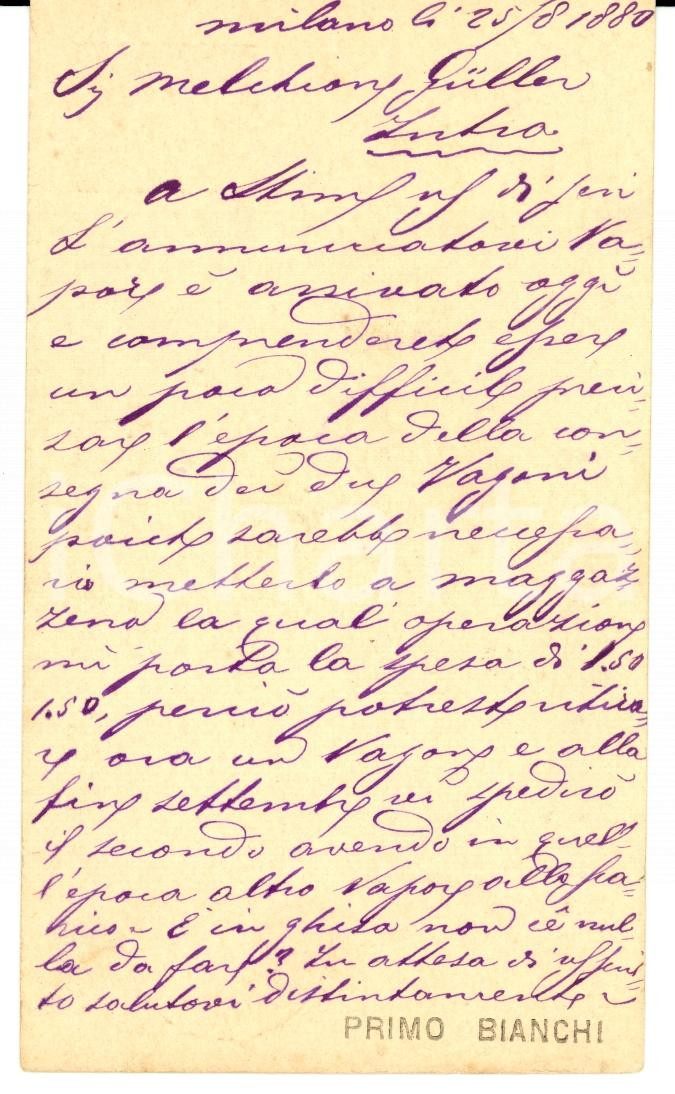 milano li 25/8 1880
Sig Melchiore Güller
Intra
a Stim vs di jeri
L'annunciatovi Va=
pore è arrivato oggi
e comprenderete essere
un poco difficile preci=
sare l'epoca della con=
segna dei due Vagoni
poichè sarebbe necessa=
rio metterlo a maggaz=
zeno la qual operazione
mi porta la spesa di 1.50
1.50, perciò potreste ritira=
re ora un Vagone e alla
fine settembre vi spedirò
il secondo avendo in quel=
l'epoca altro Vapore alla sca=
rico - E in ghisa non c'è nul=
la da fare? In attesa di
to salutovi distintamente
PRIMO BIANCHI
iCharta